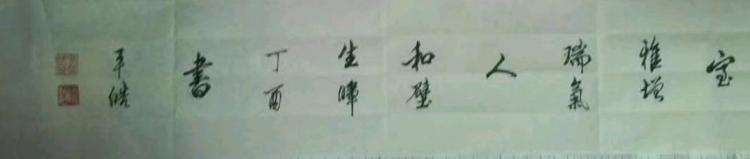 室
雅增
瑞氣
人
和壁
生暉
丁酉
書
平皓